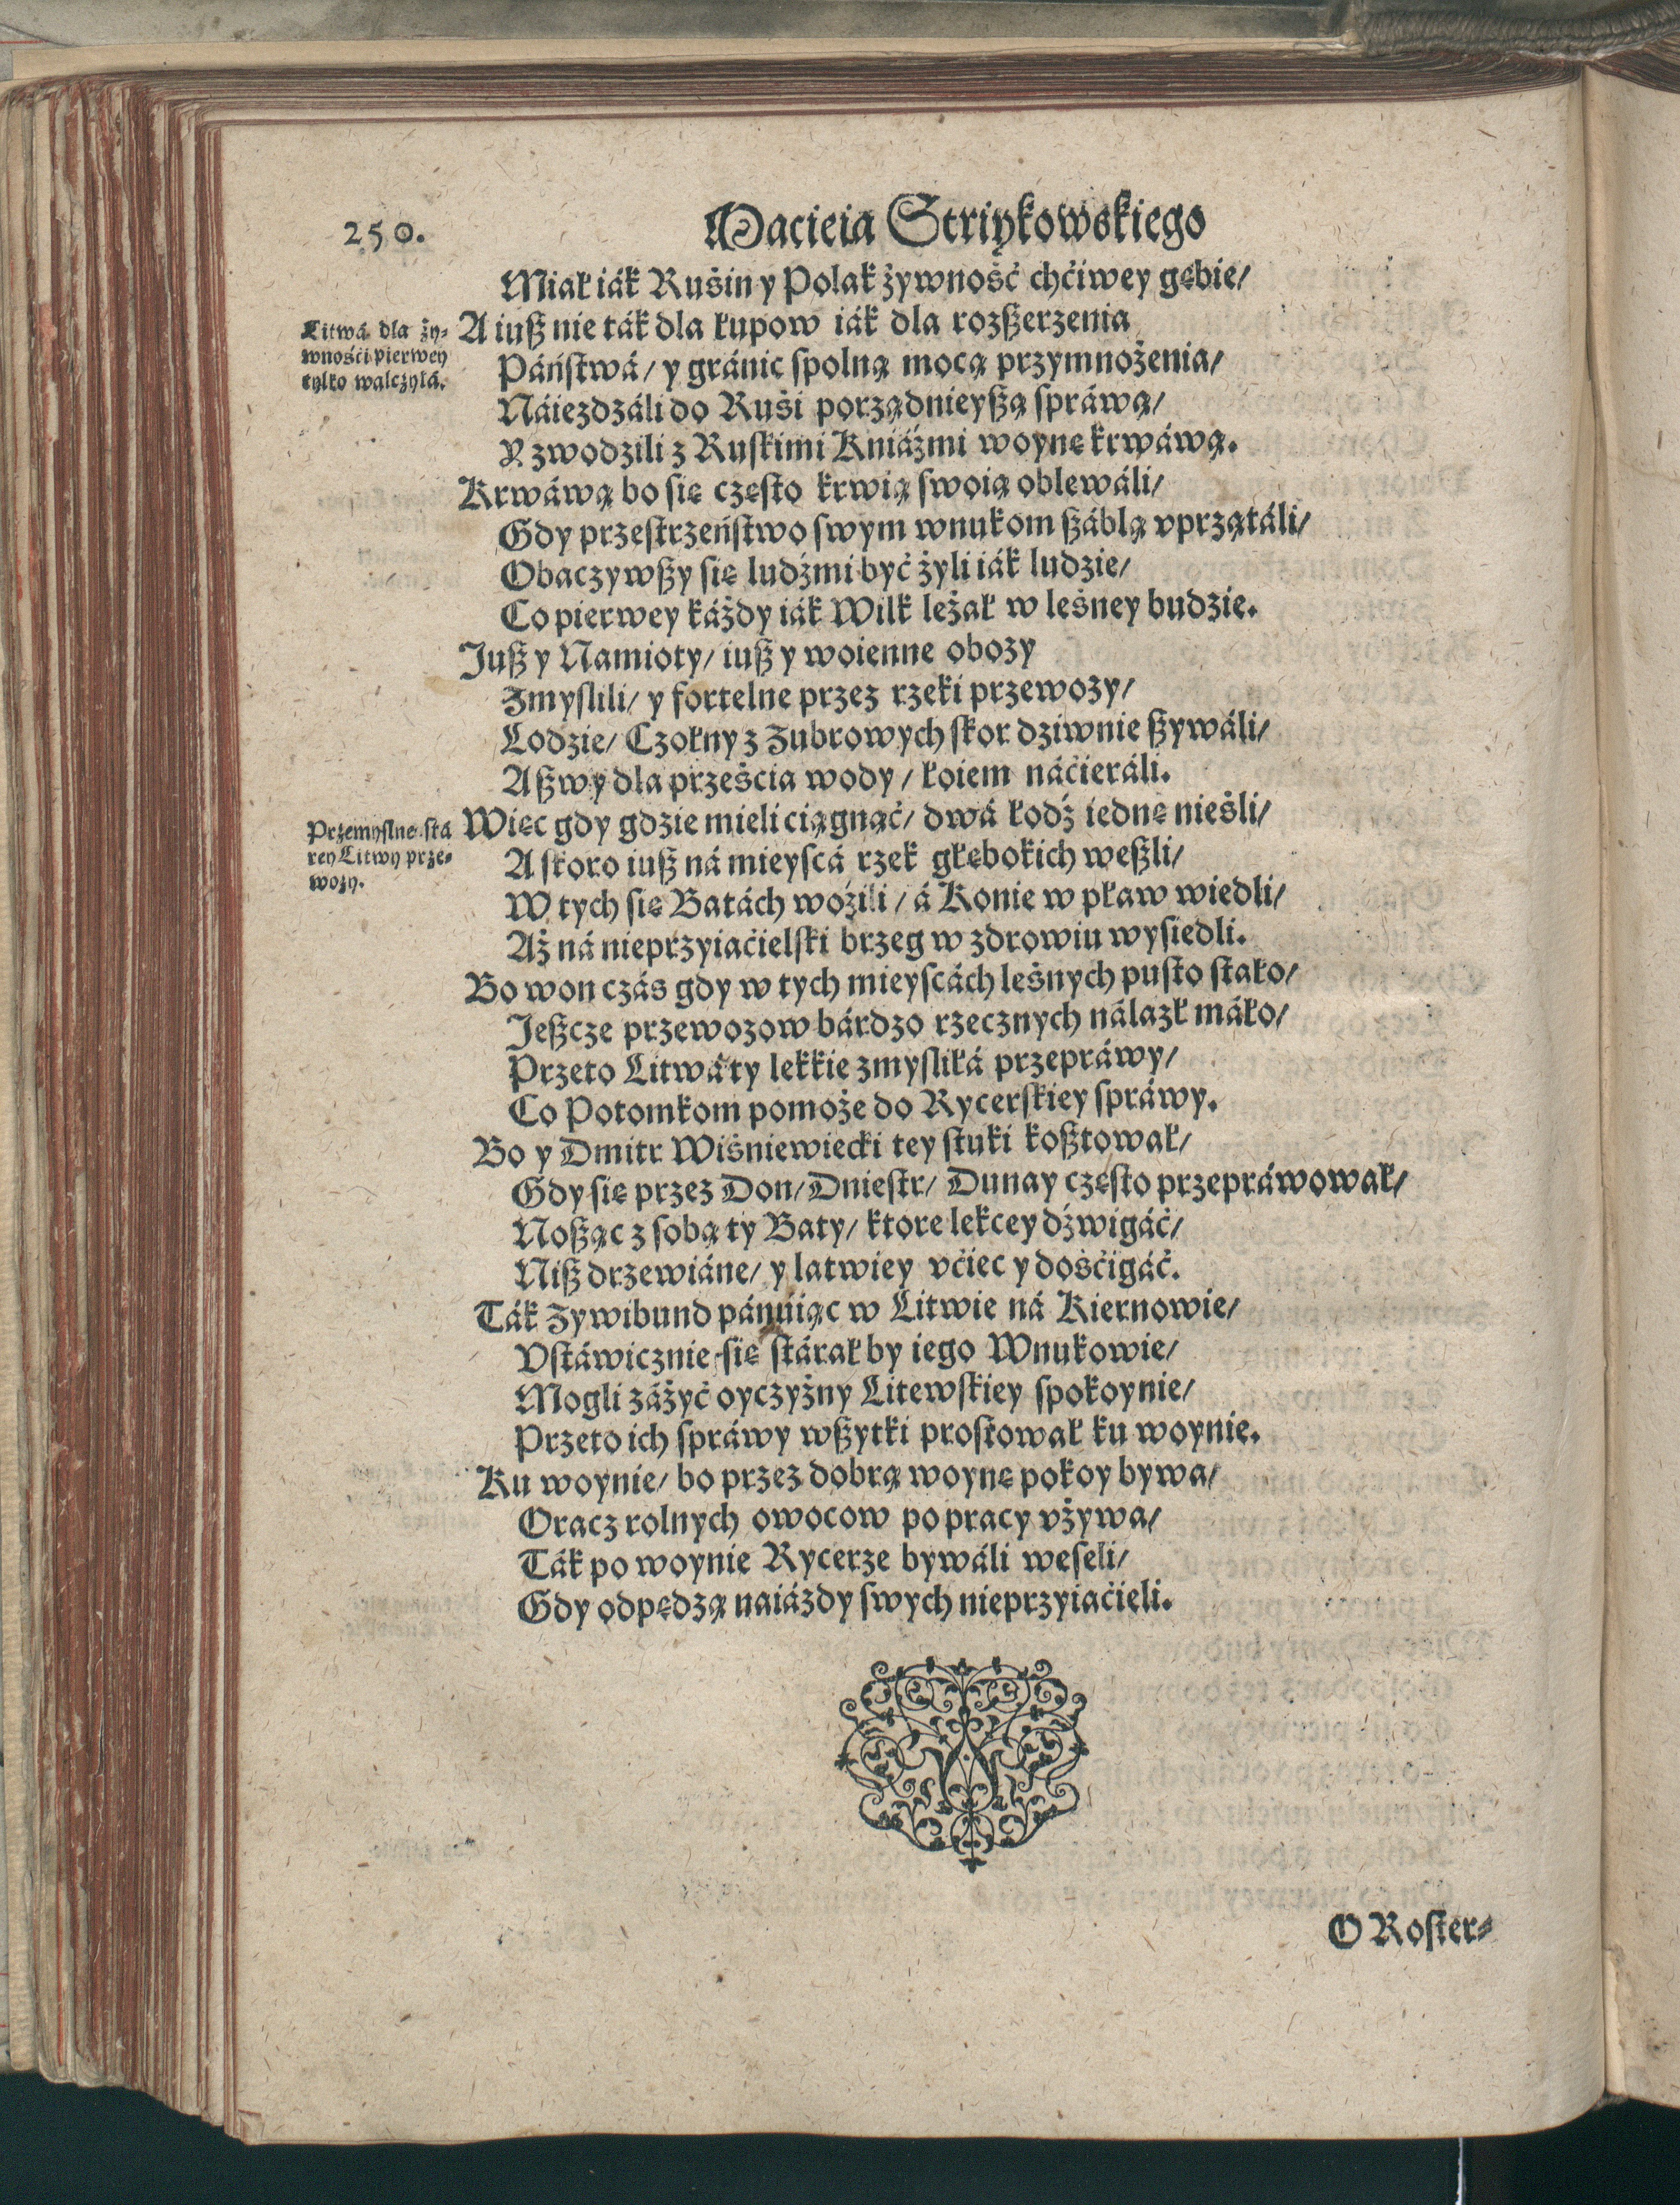 250.
Macieia Striykowskiego
Miał iák Ruśin y Polak żywność chćiwey gębie/
Litwá dla ży-
wnośći pierwey
tylko walczyłá.
A iuß nie ták dla łupow iák dla rozßerzenia
Páństwá/ y gránic spolną mocą przymnożenia/
Náiezdzáli do Ruśi porządnieyßą spráwą/
Y zwodzili z Ruskimi Kniáźmi woynę krwáwą.
Krwáwą bo się często krwią swoią oblewáli/
Gdy przestrzeństwo swym wnukom ßáblą vprzątáli/
Obaczywßy się ludźmi być żyli iák ludzie/
Co pierwey káżdy iák Wilk leżał w leśney budzie.
Juß y Namioty/ iuß y woienne obozy
Zmyslili/ y fortelne przez rzeki przewozy/
Lodzie/ Czołny z Zubrowych skor dziwnie ßywáli/
A ßwy dla prześcia wody/ łoiem náćieráli.
Przemyslne stá
rey Litwy prze-
wozy.
Więc gdy gdzie mieli ciągnąć/ dwá łodź iednę nieśli/
A skoro iuß ná mieyscá rzek głębokich weßli/
W tych się Batách woźili/ á Konie w pław wiedli/
Aż ná nieprzyiaćielski brzeg w zdrowiu wysiedli.
Bo won czás gdy w tych mieyscách leśnych pusto stało/
Jeßcze przewozow bárdzo rzecznych nálazł máło/
Przeto Litwá ty lekkie zmysliłá przepráwy/
Co Potomkom pomoże do Rycerskiey spráwy.
Bo y Dmitr Wiśniewiecki tey stuki koßtował/
Gdy się przez Don/ Dniestr/ Dunay często przepráwował/
Noßąc z sobą ty Baty/ ktore lekcey dźwigáć/
Niß drzewiáne/ y latwiey vćiec y dośćigáć.
Ták Zywibund pánuiąc w Litwie ná Kiernowie/
Vstáwicznie się stárał by iego Wnukowie/
Mogli záżyć oyczyżny Litewskiey spokoynie/
Przeto ich spráwy wßytki prostował ku woynie.
Ku woynie/ bo przez dobrą woynę pokoy bywa/
Oracz rolnych owocow po pracy vżywa/
Ták po woynie Rycerze bywáli weseli/
Gdy odpędzą naiázdy swych nieprzyiaćieli.
O Roster-